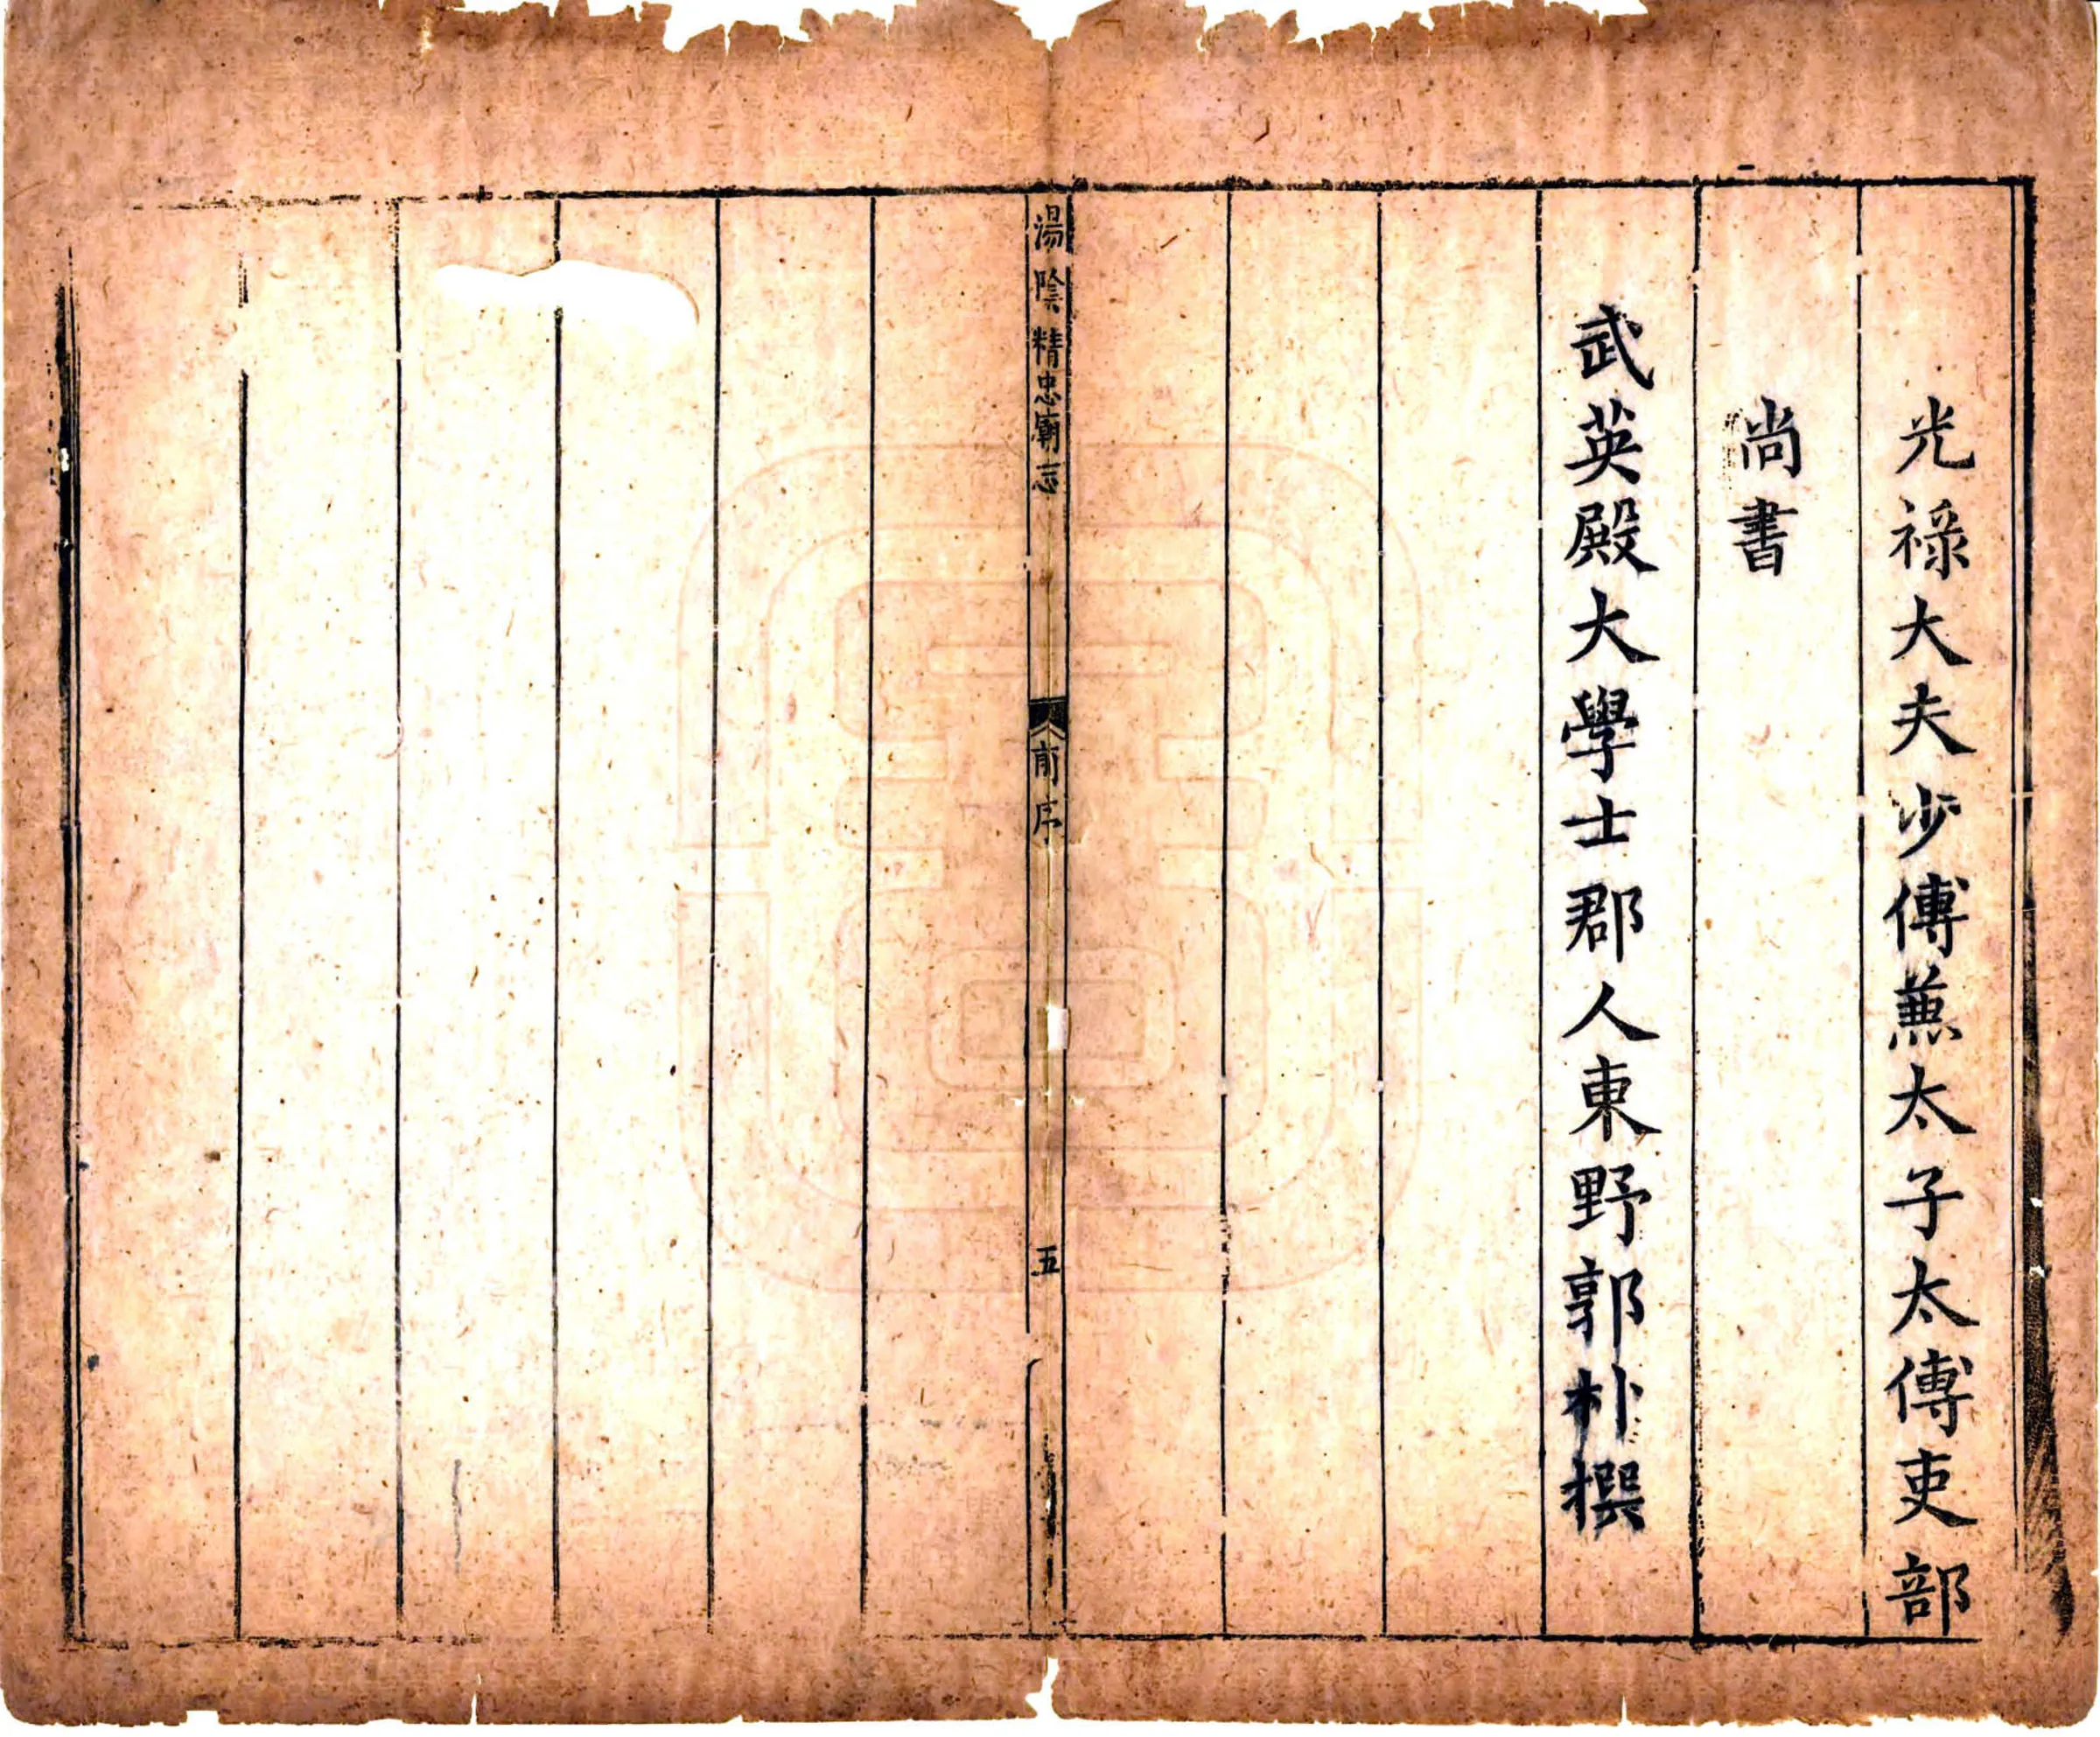 光祿大夫少傅蒹太子太傅吏部
尚書
武英殿大學士郡人東野郭朴撰
湯陰精忠廟志
前序
五